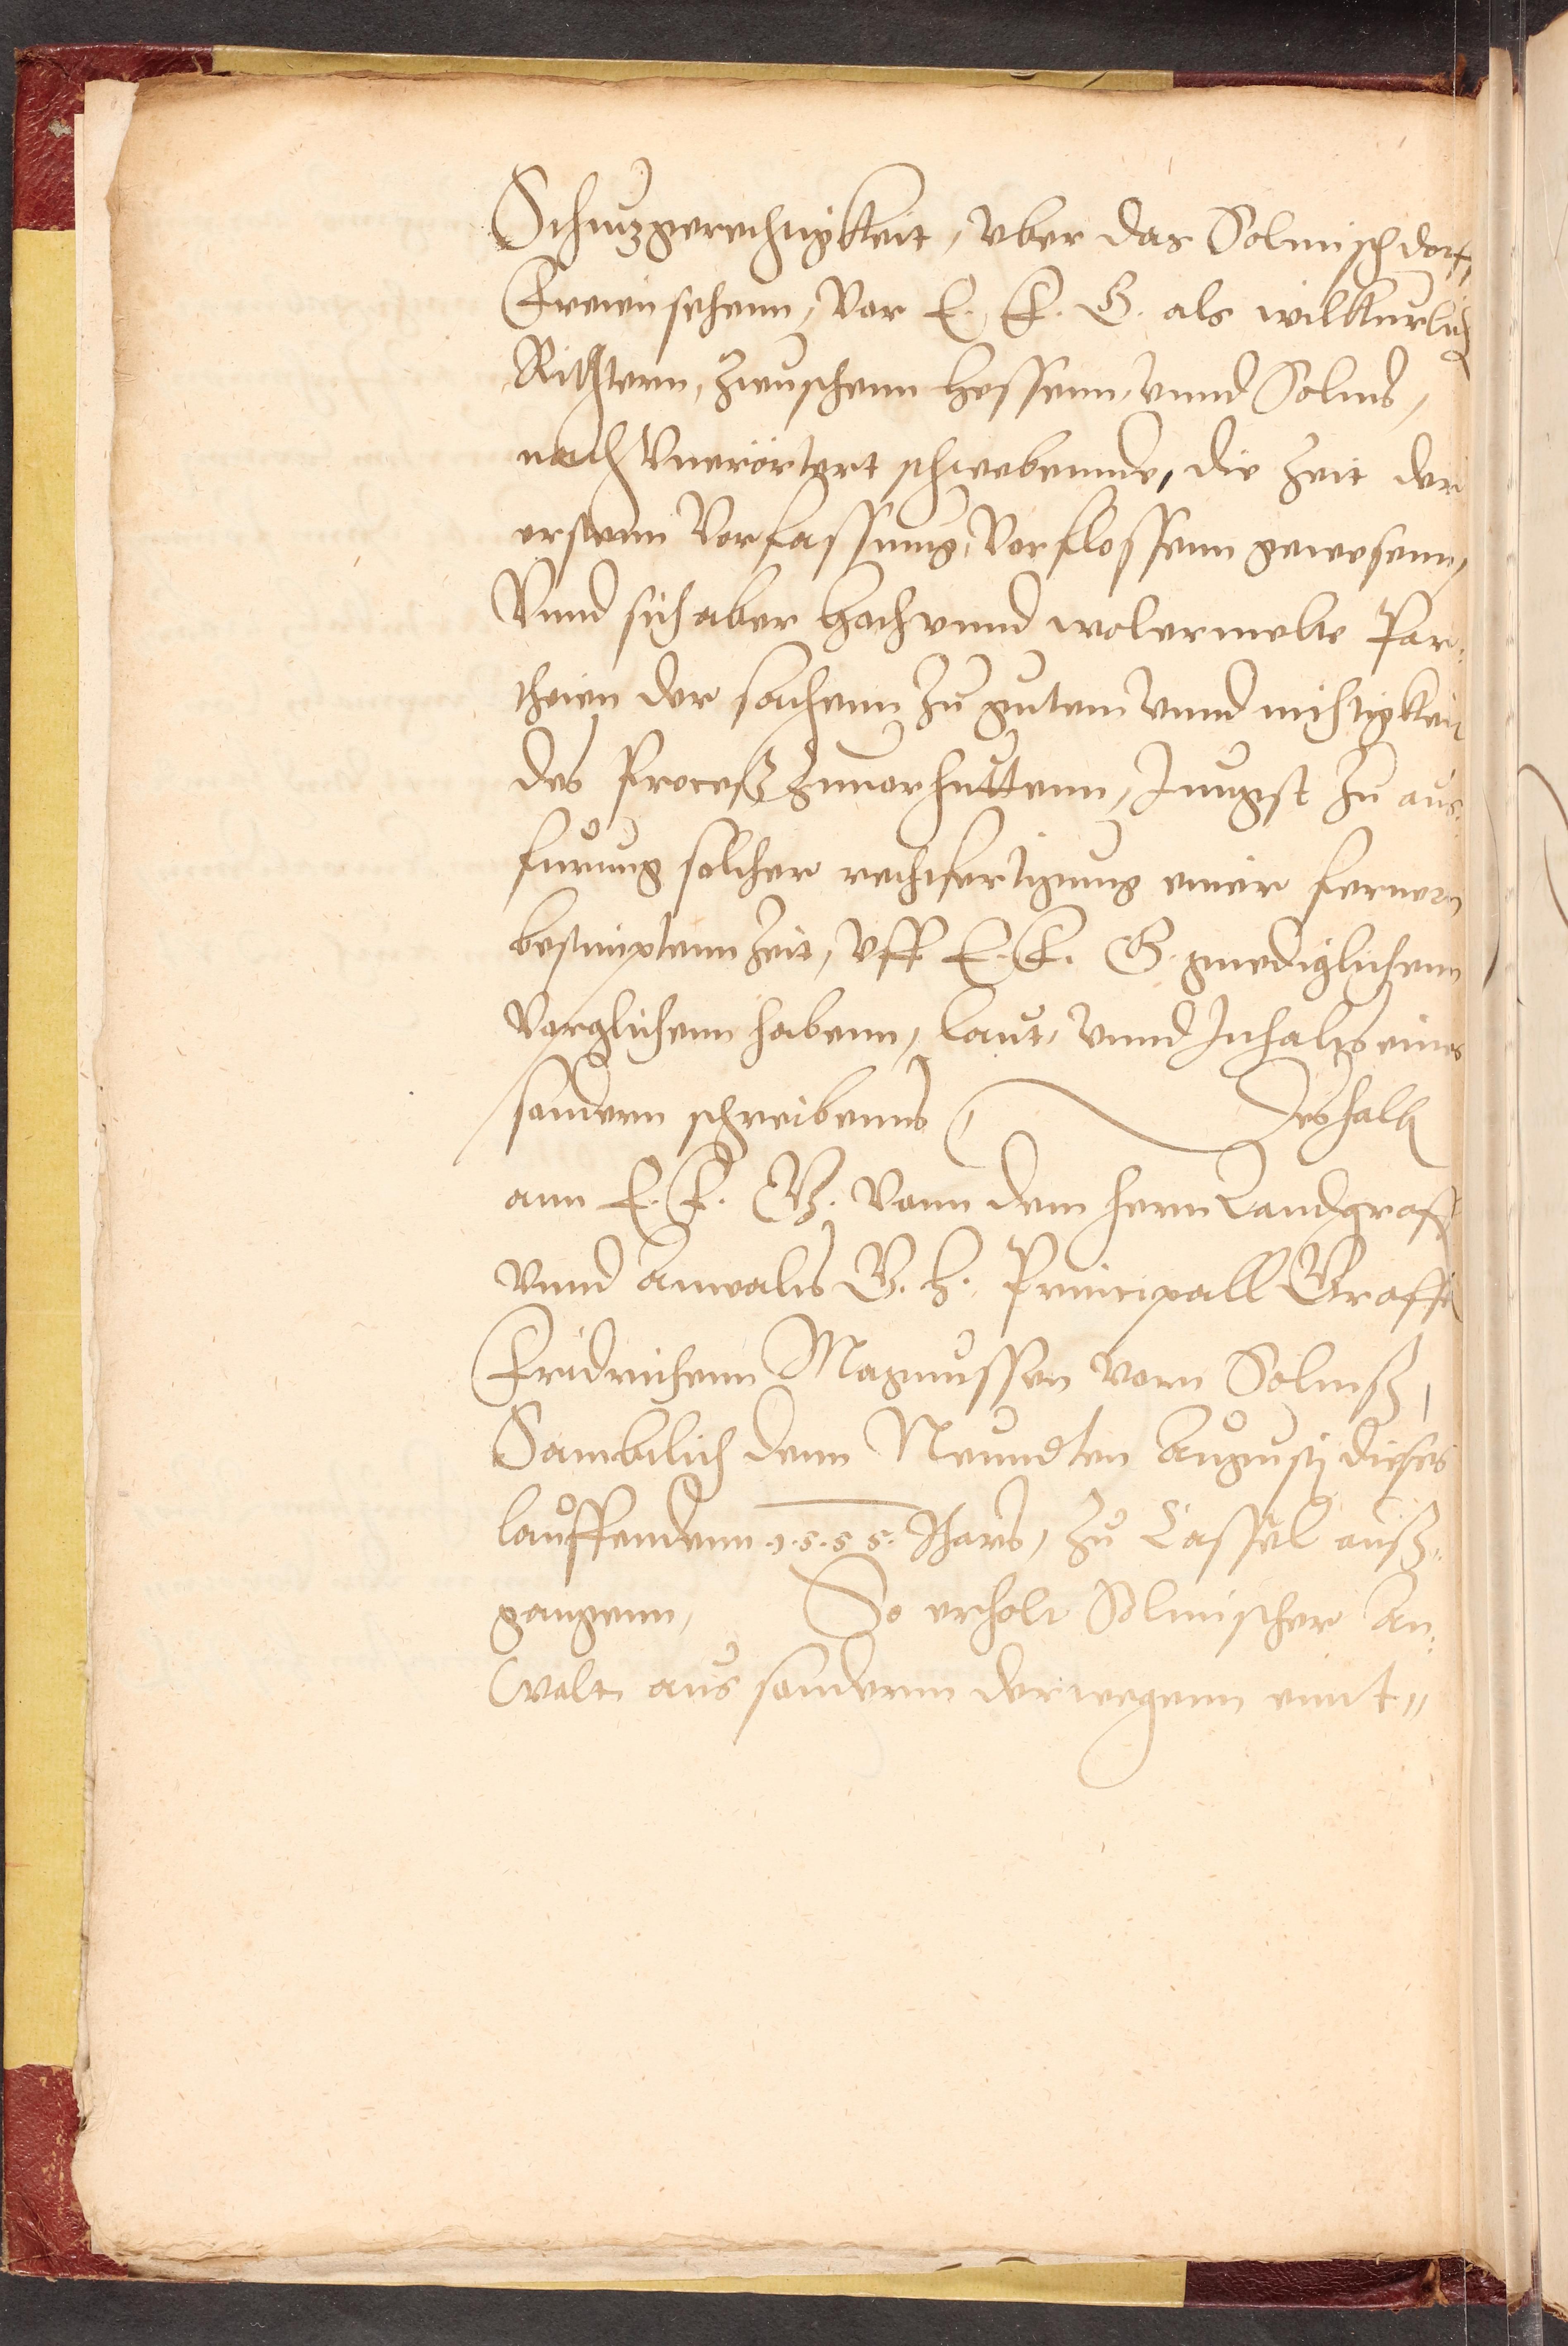 Schutzgerechtigkeit, vber das Solmisch dorf,
Freiensehenn, Vor E. F. G. als wilkurlich
Richtern, zwuschenn Hessenn, vnnd Solms,
noch Vnerörtert schwebennde, die Zeit der
erstenn Vorfassung, Vorflossenn gewesenn,
Vnnd sich aber hoch vnnd wolermelte Par:
theien der sachenn zu gutem vnnd nichtigkeit
des Proceß zuuorhuttenn, Jungst zu aus:
furung solcher rechtfertigung einer fernern
bestimptenn Zeit, vff E. F. G. gnediglichenn
Vorglichenn habenn, laut, vnnd Inhalts eines
sondern schreibenns Deshalb
ann E. F. G. vonn dem hern Landgraff
vnnd Anwalts G. H. Principall Graffe
Fridrichenn Magnussen vonn Solmß,
Sambtlich denn Neundten Augustj dieses
lauffendenn .1.5.5 5. Jhars, zu Cassel auß:
gangenn, So erholt Solmischer An:
walt aus sondernn derwegenn einnt"